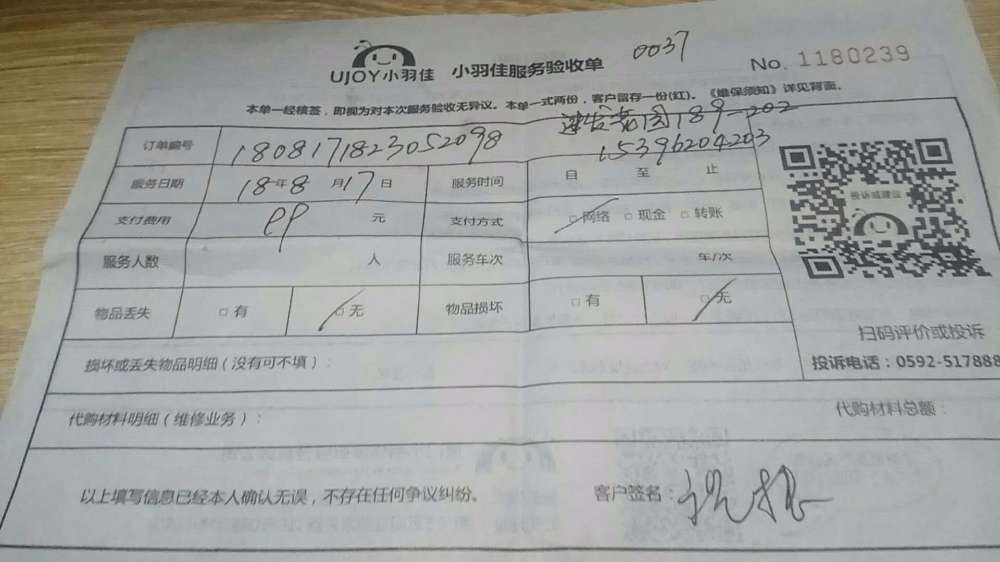 UJOY小羽佳 小羽佳服务验收单 0037 No. 1180239
本单一经核签，即视为对本次服务验收无异议。本单一式两份，客户留存一份(红)。《维保须知》详见背面。
订单编号 1808171823052098 189-202
15396204203
服务日期 18年8月17日 服务时间 自 至 止
支付费用 元 支付方式 □网络 □现金 □转账
投诉或建议
服务人数 人 服务车次 车/次
物品丢失 □有 □无 物品损坏 □有 □无
扫码评价或投诉
损坏或丢失物品明细（没有可不填）： 投诉电话：0592-517888
代购材料明细（维修业务）： 代购材料总额：
以上填写信息已经本人确认无误，不存在任何争议纠纷。 客户签名：